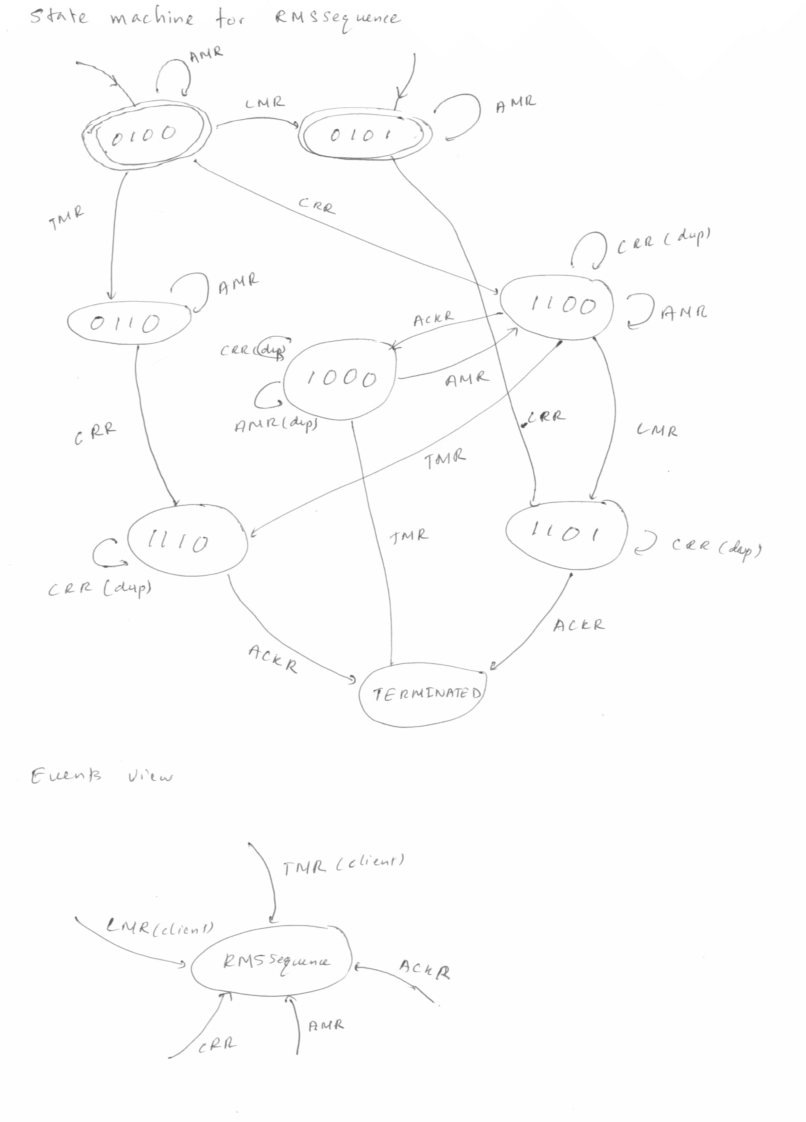 State machine for RMSSequence
AMR
LMR
AMR
0100
0101
TMR
CRR
CRR (dup)
AMR
1100
AMR
0110
ACKR
CRR (dup)
1000
AMR
AMR (dup)
CRR
CRR
LMR
TMR
1110
TMR
1101
CRR (dup)
CRR (dup)
ACKR
ACKR
TERMINATED
Events view
TMR (client)
LMR (client)
RMSSequence
ACKR
AMR
CRR